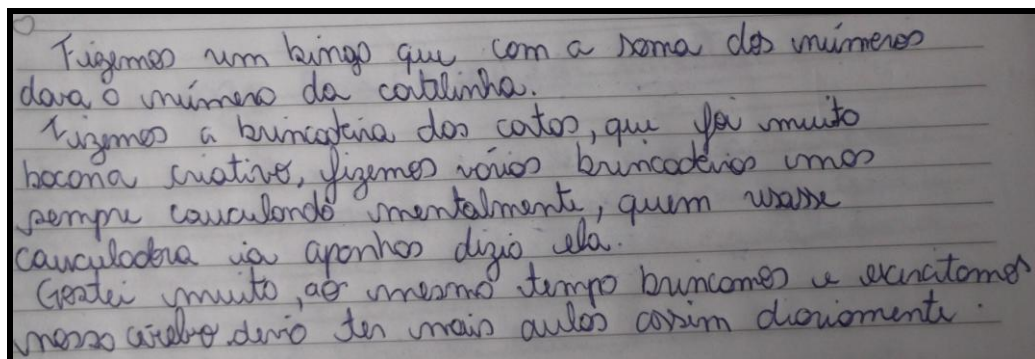 Fizemos um bingo que com a soma dos números
dava o número da cartelinha.
Fizemos a brincadeira das cartas, que foi muito
bacana criativo, fizemos várias brincadeiras mas
sempre cauculando mentalmente, quem usasse
cauculadora ia apanhar dizia ela.
Gostei muito, ao mesmo tempo brincamos e exercitamos
nosso cérebro. devia ter mais aulas assim diariamente.